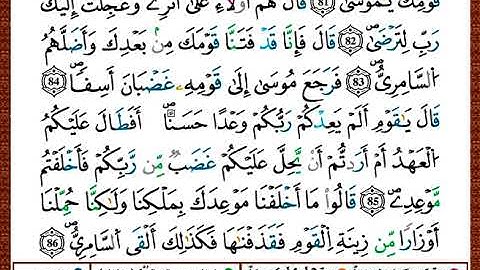 قَوْمِكَ يَٰمُوسَىٰ ﴿81﴾ قَالَ هُمْ أُوْلَآءِ عَلَىٰٓ أَثَرِے وَعَجِلْتُ إِلَيْكَ
رَبِّ لِتَرْضَىٰ ﴿82﴾ قَالَ فَإِنَّا قَدْ فَتَنَّا قَوْمَكَ مِنۢ بَعْدِكَ وَأَضَلَّهُمُ
اُ۬لسَّامِرِيُّ ﴿83﴾ فَرَجَعَ مُوسَىٰٓ إِلَىٰ قَوْمِهِۦ غَضْبَٰنَ أَسِفاٗ ﴿84﴾
قَالَ يَٰقَوْمِ أَلَمْ يَعِدْكُمْ رَبُّكُمْ وَعْداً حَسَناًۖ أَفَطَالَ عَلَيْكُمُ
اُ۬لْعَهْدُ أَمْ أَرَدتُّمُۥٓ أَنْ يَّحِلَّ عَلَيْكُمْ غَضَبٞ مِّن رَّبِّكُمْ فَأَخْلَفْتُم
مَّوْعِدِےۖ ﴿85﴾ قَالُواْ مَآ أَخْلَفْنَا مَوْعِدَكَ بِمَلْكِنَا وَلَٰكِنَّا حُمِّلْنَآ
أَوْزَاراٗ مِّن زِينَةِ اِ۬لْقَوْمِ فَقَذَفْنَٰهَا فَكَذَٰلِكَ أَلْقَى اَ۬لسَّامِرِيُّ ﴿86﴾